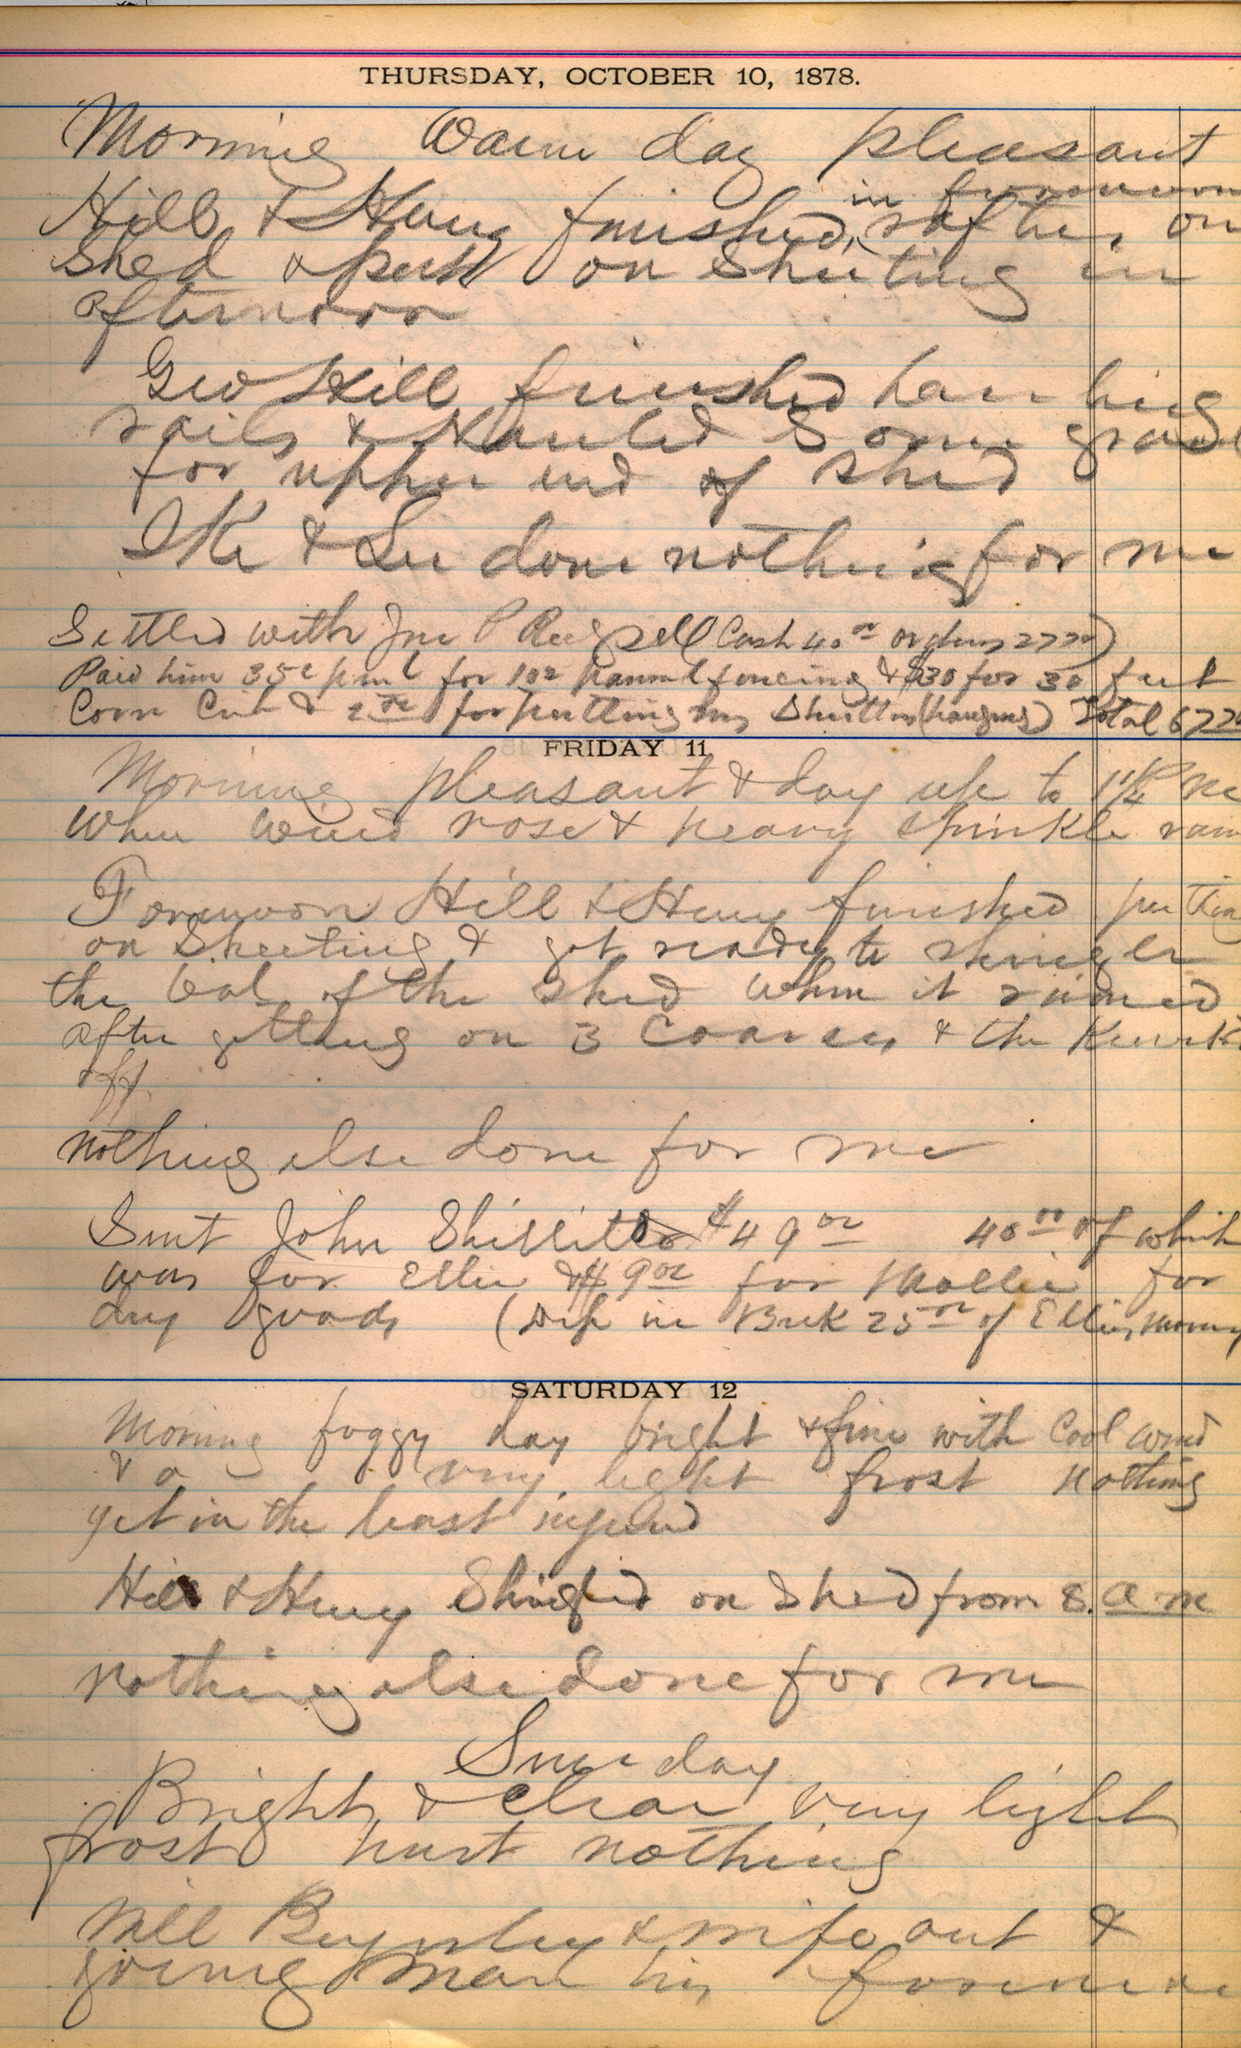 THURSDAY, OCTOBER 10, 1878.
Morning Warm day pleasant
in forenoon
Hill & Henry finished rafters on
shed & put on Sheeting in
afternoon
Geo Hill finished hauling
rails & Hauled Some gravel
for upper end of shed
Ike & Lee done nothing for me
Settled with Jno P (Cash 40 00 orders 27 20)
Paid him 35c pannel for 102 Pannel fencing & $30 for 30 feet
Corn Crib & 2 00 for putting my Shutters (hanging) Total 67 20
FRIDAY 11
Morning pleasant & day up to 1 1/4 P m
When Wind rose & heavy sprinkle rain
Forenoon Hill & Henry finished putting
on Sheeting & got ready to shingle
the bal of the shed When it rained
after getting on 3 Coarses & they
off
nothing else done for me
Sent John Shillito $49 00 40 00 of which
was for Ellie & $9 00 for Mollie for
dry goods (Dep in Bank 25 00 of Ellies money
SATURDAY 12
Morning foggy day bright & fine with Cool wind
& a very light frost nothing
yet in the least injured
Hill & Henry Shingled on Shed from 8. a m
nothing else done for me
Sunday
Bright & clear very light
frost hurt nothing
Will & wife out &
young man his